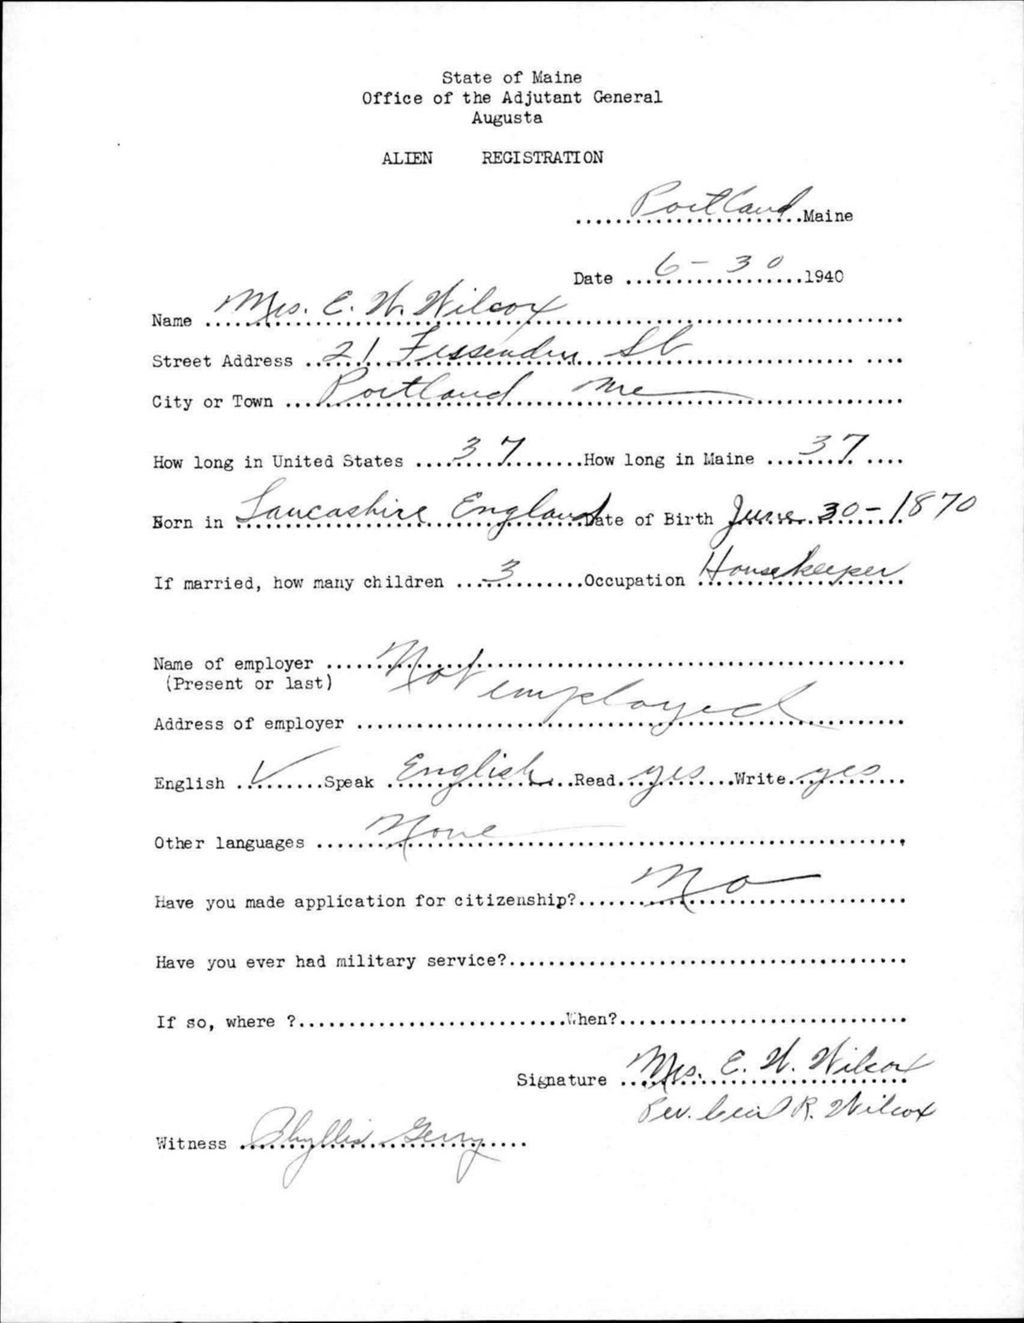 State of Maine
Office of the Adjutant General
Augusta
ALIEN REGISTRATION
Portland Maine
Date 6-30 1940
Name Mrs. E. W. Wilcox
Street Address 21 Fessenden St
City or Town Portland Me
How long in United States 37 How long in Maine 37
Born in Lancashire England Date of Birth June 30-1870
If married, how many children 3 Occupation Housekeeper
Name of employer Not employed
(Present or last)
Address of employer
English ✓ Speak English Read yes Write yes
Other languages None
Have you made application for citizenship? No
Have you ever had military service?
If so, where ? When?
Signature Mrs. E. W. Wilcox
R. Wilcox
Witness Phyllis Gerry